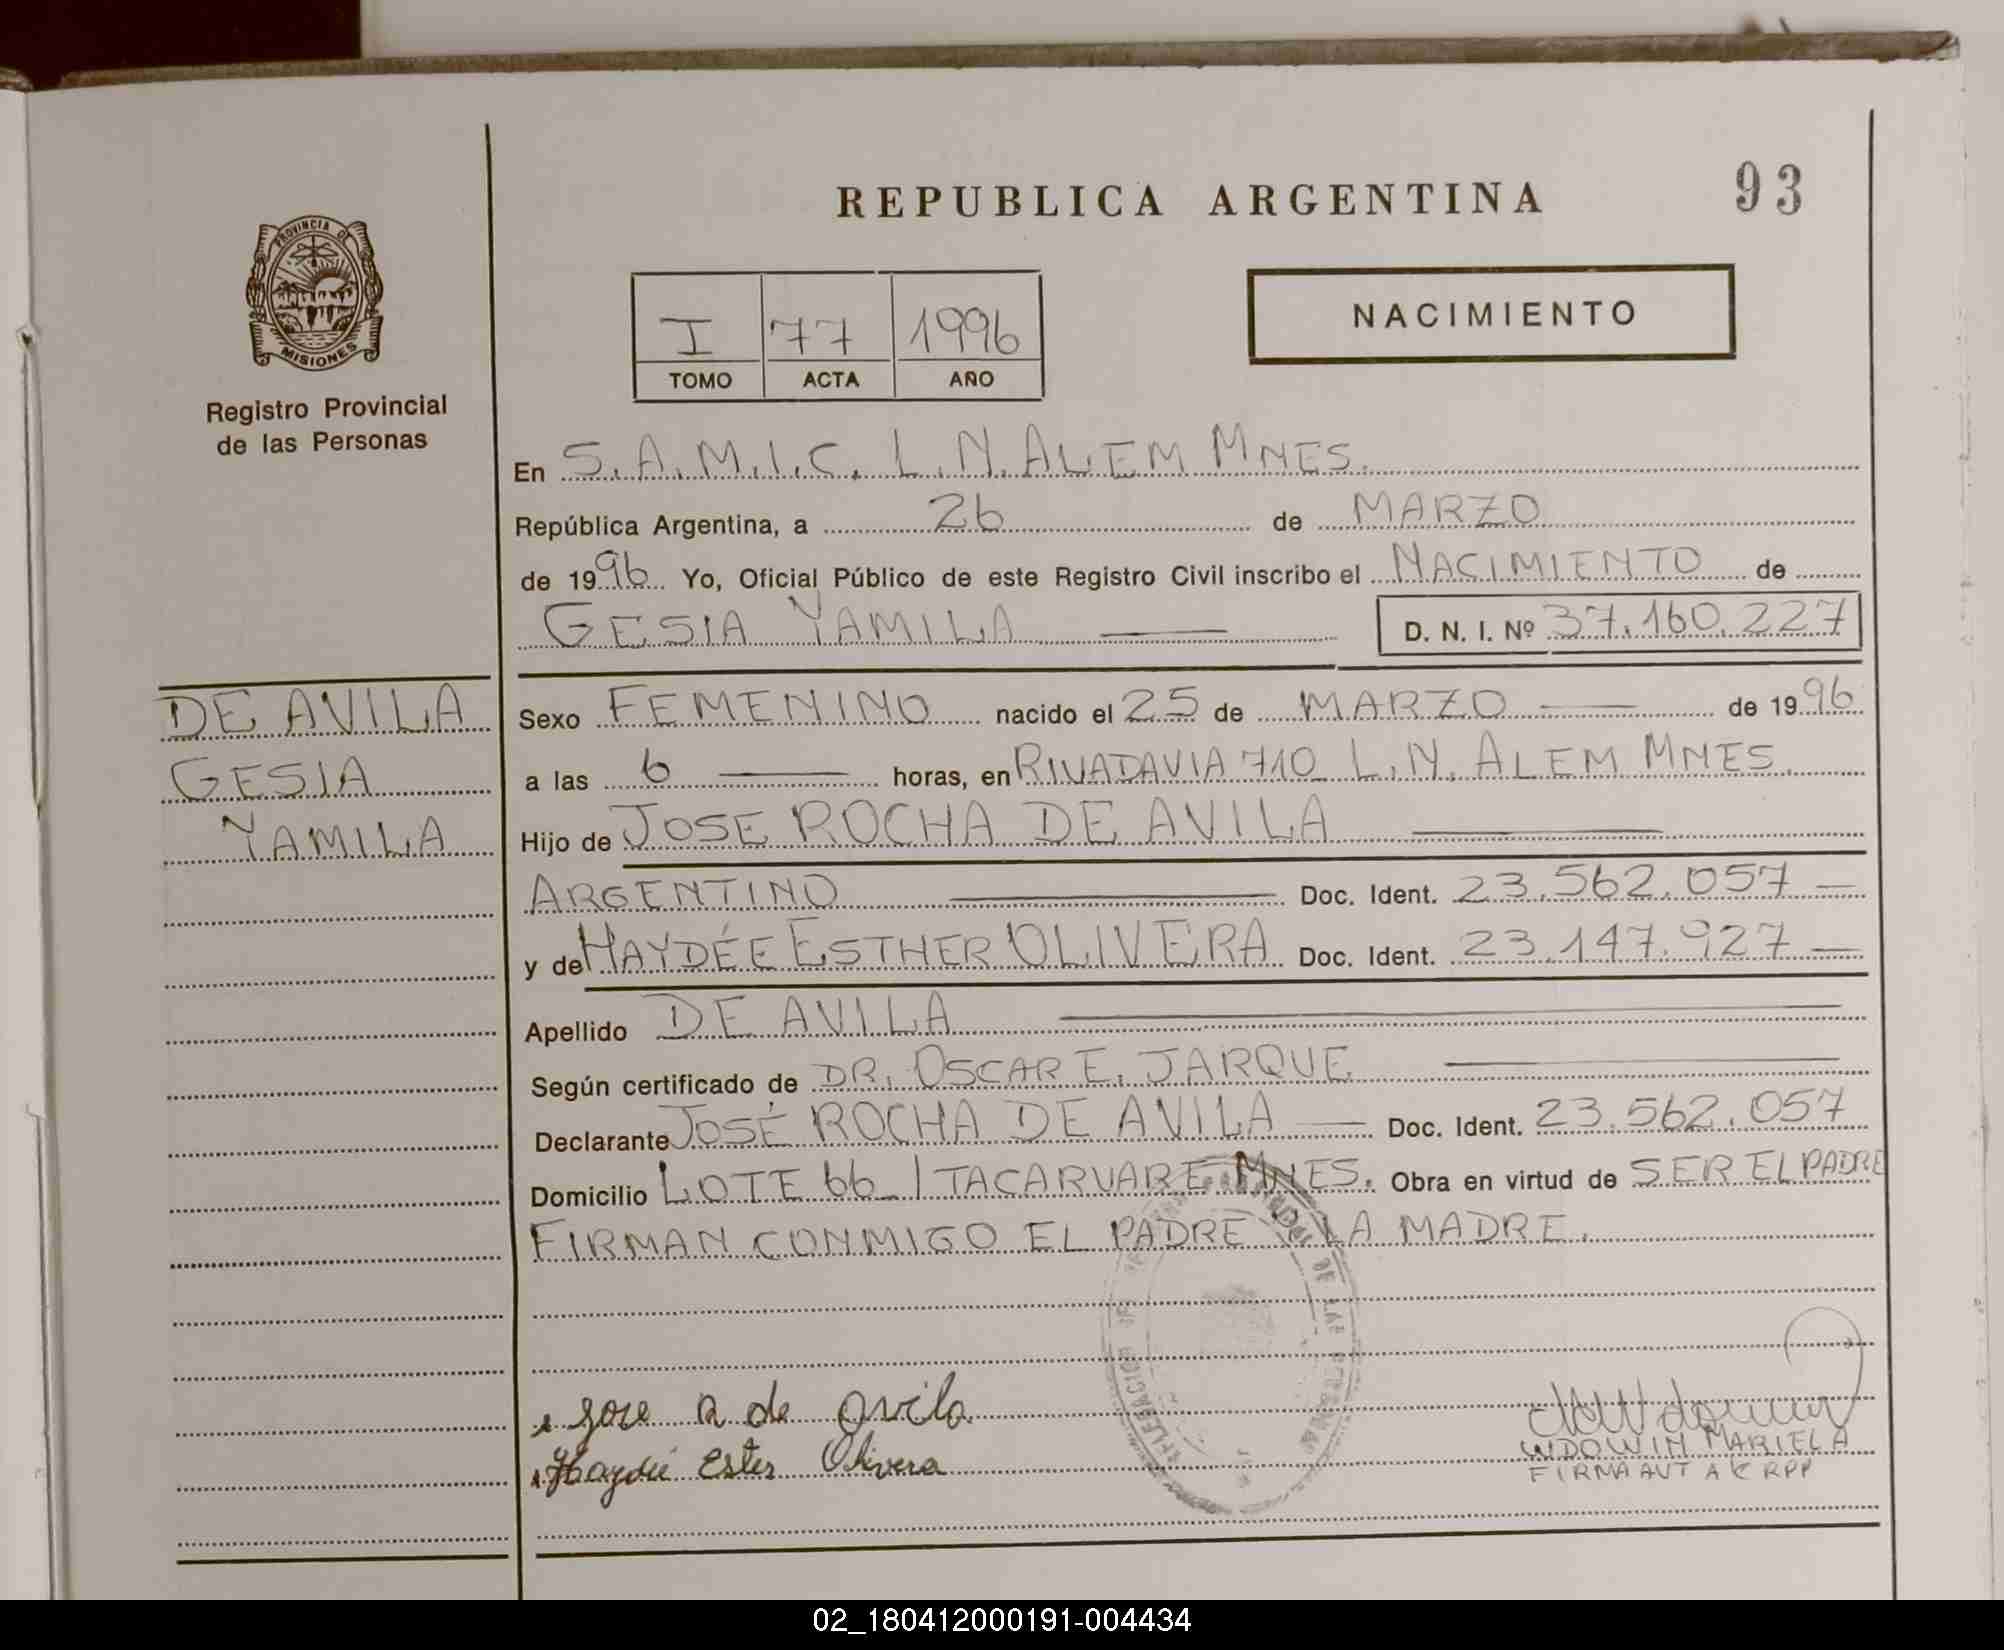 REPUBLICA ARGENTINA
93
PROVINCIA DE
MISIONES
Registro Provincial
de las Personas
I 77 1996
TOMO ACTA AÑO
NACIMIENTO
En S.A.M.I.C. L.N. ALEM MNES.
República Argentina, a 26 de MARZO
de 1996 Yo, Oficial Público de este Registro Civil inscribo el NACIMIENTO de
GESIA YAMILA D. N. I. Nº 37.160.227
DE AVILA
GESIA
YAMILA
Sexo FEMENINO nacido el 25 de MARZO de 1996
a las 6 horas, en RIVADAVIA 710 L.N. ALEM MNES.
Hijo de JOSE ROCHA DE AVILA
ARGENTINO Doc. Ident. 23.562.057
y de HAYDÉE ESTHER OLIVERA Doc. Ident. 23.147.927
Apellido DE AVILA
Según certificado de DR. OSCAR E. JARQUE
Declarante JOSÉ ROCHA DE AVILA Doc. Ident. 23.562.057
Domicilio LOTE 66 ITACARUARE MNES. Obra en virtud de SER EL PADRE
FIRMAN CONMIGO EL PADRE Y LA MADRE.
Jose R de avila
Haydée Ester Olivera
WDOWIN MARIELA
FIRMA AUT A C RPP
02_180412000191-004434